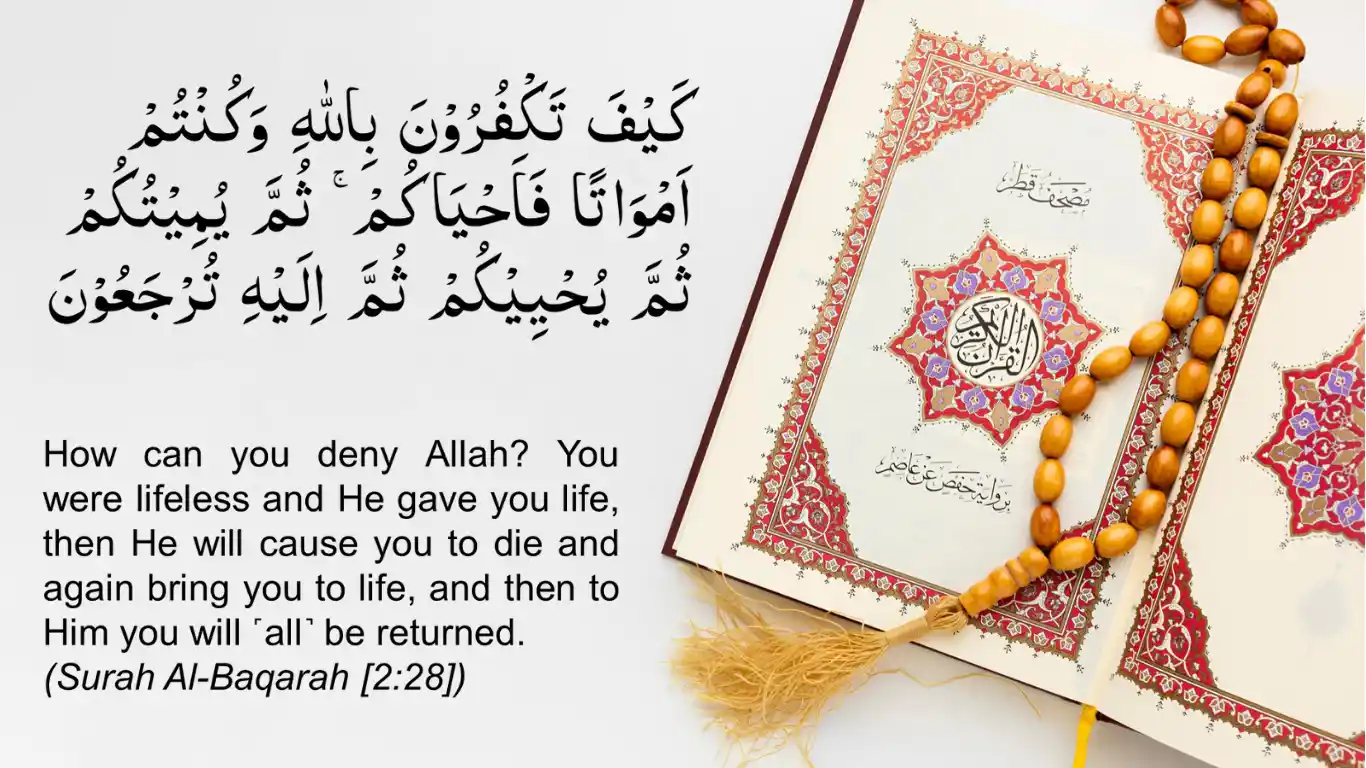 كَيْفَ تَكْفُرُوْنَ بِاللّٰهِ وَكُنْتُمْ
اَمْوَاتًا فَاَحْيَاكُمْ ۚ ثُمَّ يُمِيْتُكُمْ
ثُمَّ يُحْيِيْكُمْ ثُمَّ اِلَيْهِ تُرْجَعُوْنَ
How can you deny Allah? You
were lifeless and He gave you life,
then He will cause you to die and
again bring you to life, and then to
Him you will ˹all˺ be returned.
(Surah Al-Baqarah [2:28])
مصحف قطر
القرآن الكريم
برواية حفص عن عاصم